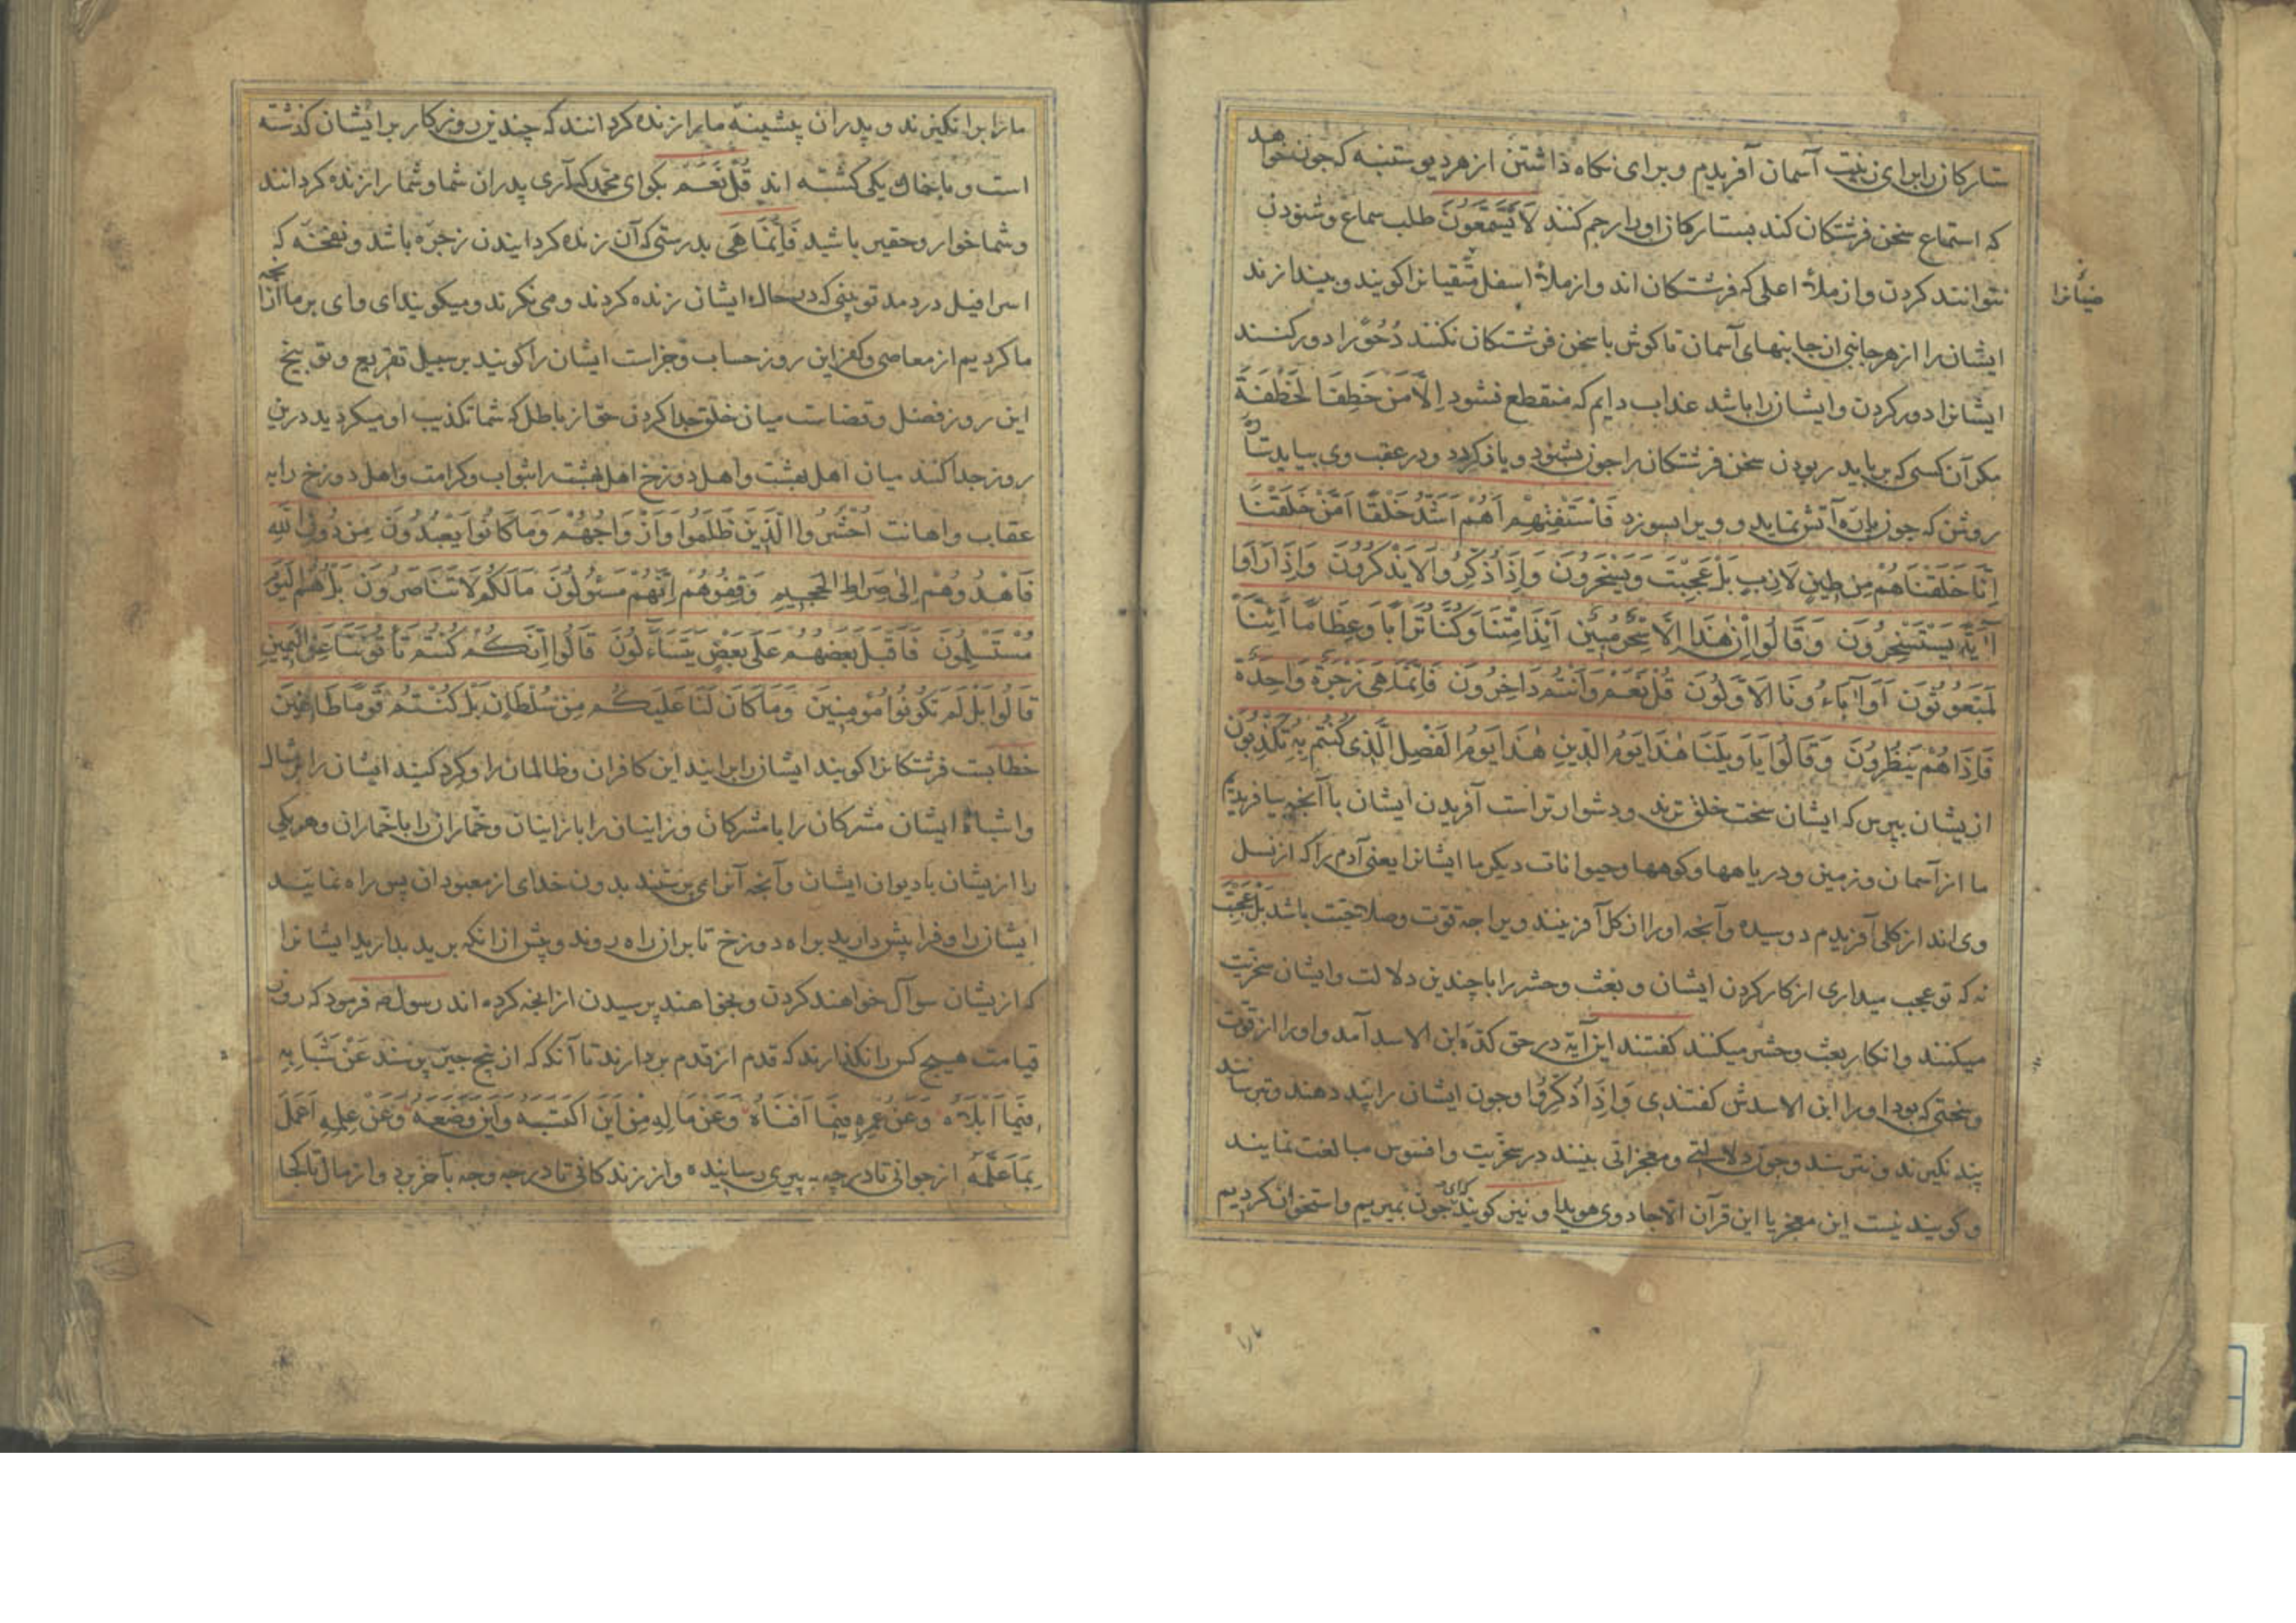 ستارکان را برای زینت آسمان آفریدم و برای نکاه داشتن از هر دیو ستنبه که جون خواهد
که استماع سخن فرشتکان کند بستارکان او را رجم کنند لَا یَسَّمَّعُونَ طلب سماع و شنودن
نتوانند کردن و از ملأ اعلی که فرشتکان اند و از ملأ اسفل متقیانرا کویند و بیندازند
ایشان را از هر جانبی از جانبهای آسمان تا کوش با سخن فرشتکان نکنند دُحُورًا دور کنند
ایشانرا دور کردن و ایشان را باشد عذاب دایم که منقطع نشود اِلَّا مَنْ خَطِفَ الْخَطْفَةَ
مکر آن کسی که برباید ربودن سخن فرشتکان را جون بشنود و یاد کردد و در عقب وی بیاید ستاره
روشن که جون پاره آتش نماید و ویرا بسوزد فَاسْتَفْتِهِمْ اَهُمْ اَشَدُّ خَلْقًا اَمَّنْ خَلَقْنَا
اِنَّا خَلَقْنَاهُمْ مِنْ طِینٍ لَازِبٍ بَلْ عَجِبْتَ وَیَسْخَرُونَ وَاِذَا ذُکِّرُوا لَا یَذْکُرُونَ وَاِذَا رَاَوْا
آیَةً یَسْتَسْخِرُونَ وَقَالُوا اِنْ هٰذَا اِلَّا سِحْرٌ مُبِینٌ اَئِذَا مِتْنَا وَکُنَّا تُرَابًا وَعِظَامًا اَئِنَّا
لَمَبْعُوثُونَ اَوَآبَاءُونَا الْاَوَّلُونَ قُلْ نَعَمْ وَاَنْتُمْ دَاخِرُونَ فَاِنَّمَا هِیَ زَجْرَةٌ وَاحِدَةٌ
فَاِذَا هُمْ یَنْظُرُونَ وَقَالُوا یَا وَیْلَنَا هٰذَا یَوْمُ الدِّینِ هٰذَا یَوْمُ الْفَصْلِ الَّذِی کُنْتُمْ بِهِ تُکَذِّبُونَ
ازیشان بپرس که ایشان سخت خلق ترند و دشوارتر است آفریدن ایشان یا آنجه بیافریدیم
ما از آسمان و زمین و دریاهها و کوهها و حیوانات دیکر ما ایشانرا یعنی آدم را که از نسل
وی اند از کلی آفریدم دوسیده و آنجه او را از کل آفرینند ویرا جه قوت و صلابت باشد بَلْ عَجِبْتَ
نه که تو عجب میداری از کار کردن ایشان و بعث و حشر را با چندین دلالت و ایشان سخریت
میکنند و انکار بعث و حشر میکنند کفتند این آیه در حق کلدة ابن الاسد آمد و او را از قوت
و سختی که بود او را ابن الاسدش کفتندی وَاِذَا ذُکِّرُوا و جون ایشان را پند دهند و بترسانند
پند نکیرند و نترسند و جون دلالتی و معجزاتی بینند در سخریت و افسوس مبالغت نمایند
و کویند نیست این معجز یا این قرآن الا جادوی هویدا و نیز کویند که ای جون بمیریم و استخوان کردیم
مارا
مارا برانکیزند و پدران پیشینه مارا زنده کردانند که چندین روزکار بر ایشان کذشته
است و با خاک یکی کشته اند قُلْ نَعَمْ بکو ای محمد که آری پدران شما و شما را زنده کردانند
و شما خوار و حقیر باشید فَاِنَّمَا هِیَ بدرستی که آن زنده کردانیدن زجره باشد و نفخه که
اسرافیل در دمد تو بینی که در حال ایشان زنده کردند و می نکرند و میکویند ای وای بر ما از آنجه
ما کردیم از معاصی و کفر این روز حساب و جزاست ایشان را کویند بر سبیل تقریع و توبیخ
این روز فصل و قضاست میان خلق جدا کردن حق از باطل که شما تکذیب او میکردید درین
روز جدا کنند میان اهل بهشت و اهل دوزخ اهل بهشت را بثواب و کرامت و اهل دوزخ را به
عقاب و اهانت اُحْشُرُوا الَّذِینَ ظَلَمُوا وَاَزْوَاجَهُمْ وَمَا کَانُوا یَعْبُدُونَ مِنْ دُونِ اللّٰهِ
فَاهْدُوهُمْ اِلٰی صِرَاطِ الْجَحِیمِ وَقِفُوهُمْ اِنَّهُمْ مَسْئُولُونَ مَالَکُمْ لَا تَنَاصَرُونَ بَلْ هُمُ الْیَوْمَ
مُسْتَسْلِمُونَ فَاَقْبَلَ بَعْضُهُمْ عَلٰی بَعْضٍ یَتَسَاءَلُونَ قَالُوا اِنَّکُمْ کُنْتُمْ تَاْتُونَنَا عَنِ الْیَمِینِ
قَالُوا بَلْ لَمْ تَکُونُوا مُؤْمِنِینَ وَمَا کَانَ لَنَا عَلَیْکُمْ مِنْ سُلْطَانٍ بَلْ کُنْتُمْ قَوْمًا طَاغِینَ
خطابست فرشتکانرا کویند ایشان را برانید این کافران و ظالمان را و کرد کنید ایشان را
و اشباه ایشان مشرکان را با مشرکان و زانیان را با زانیان و خماران را با خماران و هر یکی
را ازیشان با دیوان ایشان و آنجه آنرا می پرستند بدون خدای از معبودان پس راه نمایید
ایشان را و فرا پیش دارید براه دوزخ تا بران راه روند و پیش از انکه برید بدارید ایشانرا
که ازیشان سوآل خواهند کردن و بخواهند پرسیدن از انجه کرده اند رسول صه فرمود که روز
قیامت هیج کس را نکذارند که قدم از قدم بردارند تا آنکه که از پنج جیز پرسند عَنْ شَبَابِهِ
فِیمَا اَبْلَاهُ وَعَنْ عُمْرِهِ فِیمَا اَفْنَاهُ وَعَنْ مَالِهِ مِنْ اَیْنَ اکْتَسَبَهُ وَاَیْنَ وَضَعَهُ وَعَنْ عِلْمِهِ اَعَمِلَ
بِمَا عَلَّمَهُ از جوانی تا در چه بپیری رسانیده و از زندکانی تا در جه وجه بآخر برد و از مال تا کجا